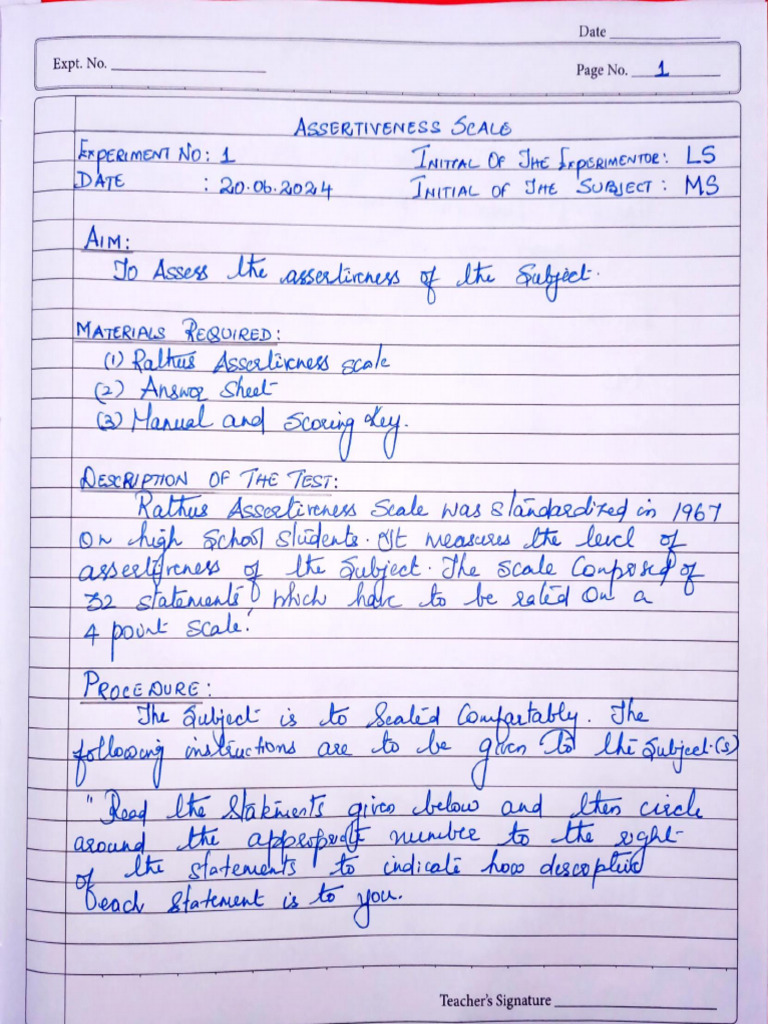 Date
Expt. No.
Page No. 1
ASSERTIVENESS SCALE
EXPERIMENT NO: 1 INITIAL OF THE EXPERIMENTOR: LS
DATE : 20.06.2024 INITIAL OF THE SUBJECT: MS
AIM:
To Assess the assertiveness of the Subject.
MATERIALS REQUIRED:
(1) Rathus Assertiveness scale
(2) Answer Sheet
(3) Manual and Scoring Key.
DESCRIPTION OF THE TEST:
Rathus Assertiveness Scale was standardized in 1967
on high School students. It measures the level of
assertiveness of the Subject. The scale Composed of
32 statements which have to be rated on a
4 point scale.
PROCEDURE:
The Subject is to Seated Comfortably. The
following instructions are to be given to the Subject.(s)
"Read the Statements given below and then circle
around the number to the right
of the statements to indicate how descriptive
each statement is to you.
Teacher's Signature